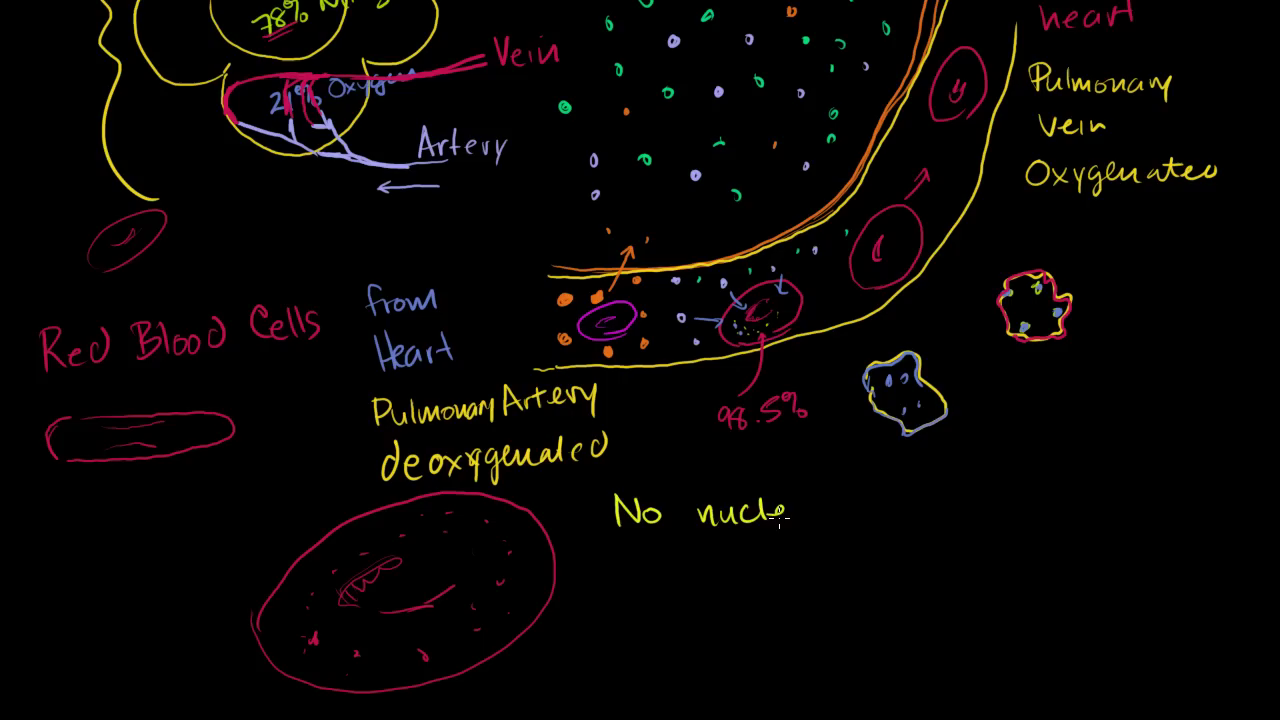 78%
Vein
21% Oxygen
Artery
heart
Pulmonary
vein
Oxygenated
Red Blood Cells
from
Heart
Pulmonary Artery
deoxygenated
98.5%
No nucle